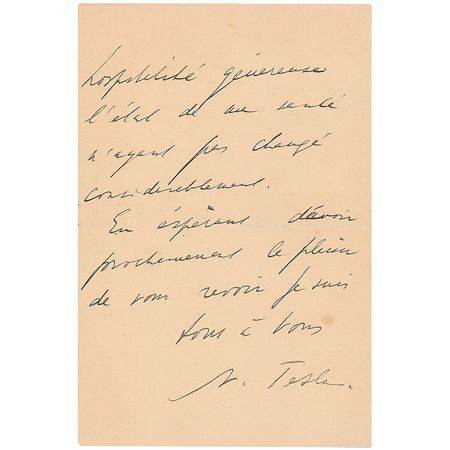 hospitalité généreuse
l'état de ma santé
n'ayant pas changé
considerablement.
En éspérant d'avoir
prochemement le plaisir
de vous revoir Je suis
tous à Vous
N. Tesla.